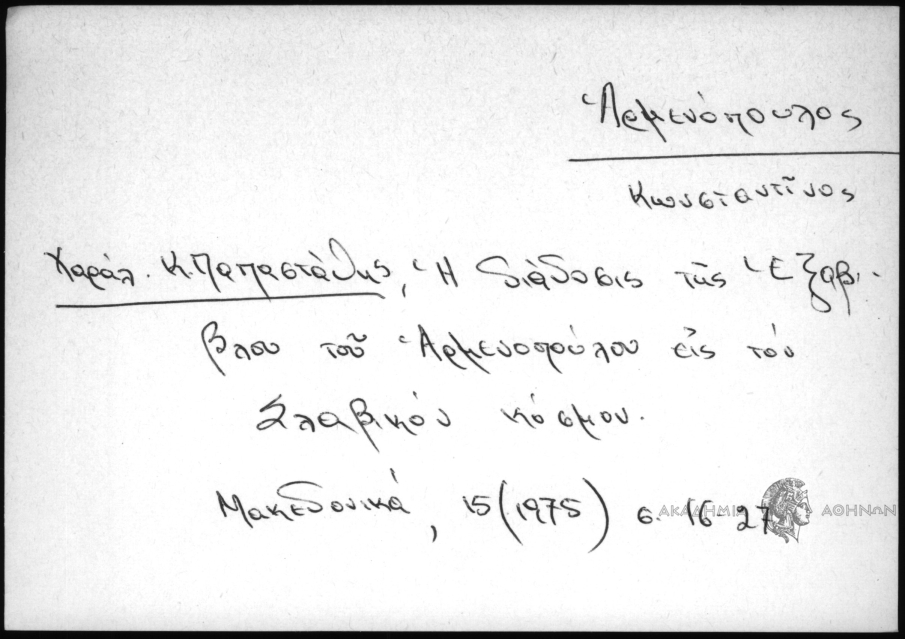 Ἁρμενόπουλος
Κωνσταντῖνος
Χαράλ. Κ. Παπαστάθης, Ἡ διάδοσις τῆς Ἑξαβί-
βλου τοῦ Ἁρμενοπούλου εἰς τόν
Σλαβικόν κόσμον.
Μακεδονικά, 15 (1975) σ. 16-27
ΑΚΑΔΗΜΙΑ ΑΘΗΝΩΝ